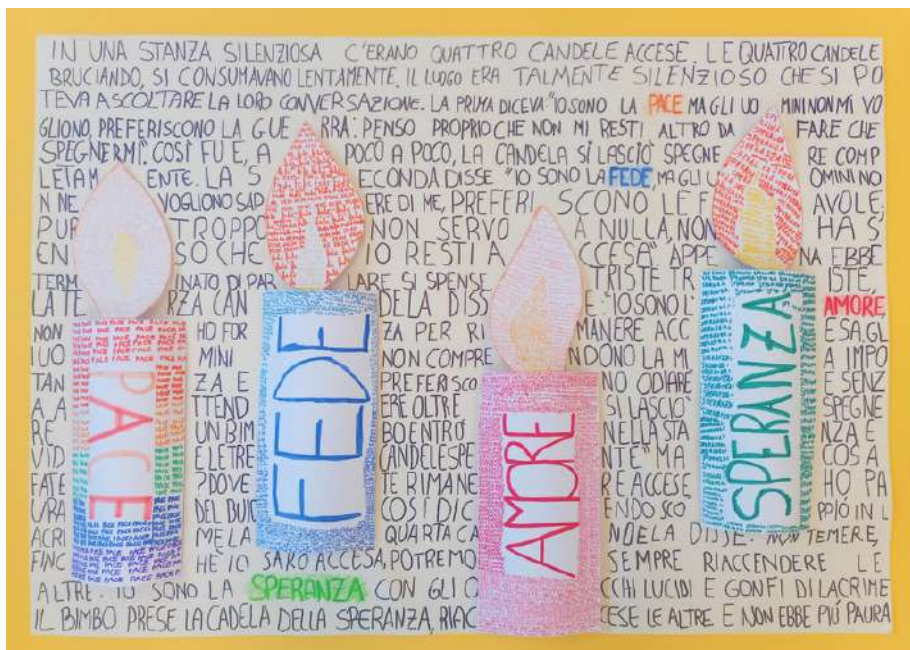 IN UNA STANZA SILENZIOSA C'ERANO QUATTRO CANDELE ACCESE. LE QUATTRO CANDELE
BRUCIANDO, SI CONSUMAVANO LENTAMENTE. IL LUOGO ERA TALMENTE SILENZIOSO CHE SI PO
TEVA ASCOLTARE LA LORO CONVERSAZIONE. LA PRIMA DICEVA "IO SONO LA PACE MA GLI UO MINI NON MI VO
GLIONO, PREFERISCONO LA GUE RRA: PENSO PROPRIO CHE NON MI RESTI ALTRO DA FARE CHE
SPEGNERMI". COSÌ FU E, A POCO A POCO, LA CANDELA SI LASCIÒ SPEGNE RE COMP
LETAM ENTE. LA S ECONDA DISSE "IO SONO LA FEDE, MA GLI U OMINI NO
N NE VOGLIONO SAP ERE DI ME, PREFERI SCONO LE F AVOLE,
PUR TROPPO NON SERVO A NULLA, NON HA S
EN SO CHE IO RESTI A CCESA" APPE NA EBBE
TERM INATO DI PAR LARE SI SPENSE TRISTE TR ISTE,
LA TE RZA CAN DELA DISS E "IO SONO L' AMORE,
NON HO FOR ZA PER RI MANERE ACC ESA GL
I UO MINI NON COMPRE NDONO LA MI A IMPO
TAN ZA E PREFERISCO NO ODIARE E SENZ
A A TTEND ERE OLTRE SI LASCIO' SPEGNE
RE UN BIM BO ENTRÒ NELLA STA NZA E
VID E LE TRE CANDELE SPE NTE" MA COSA
FATE ? DOVE TE RIMANE RE ACCESE, HO PA
URA DEL BUI COSÌ DIC ENDO SCO PPIÒ IN L
ACRI ME LA QUARTA CA NDELA DISSE: "NON TEMERE,
FINC HÈ IO SARÒ ACCESA, POTREMO SEMPRE RIACCENDERE LE
ALTRE: IO SONO LA SPERANZA CON GLI O CCHI LUCIDI E GONFI DI LACRIME
IL BIMBO PRESE LA CADELA DELLA SPERANZA, RIAC CESE LE ALTRE E NON EBBE PIÚ PAURA
PACE
FEDE
AMORE
SPERANZA